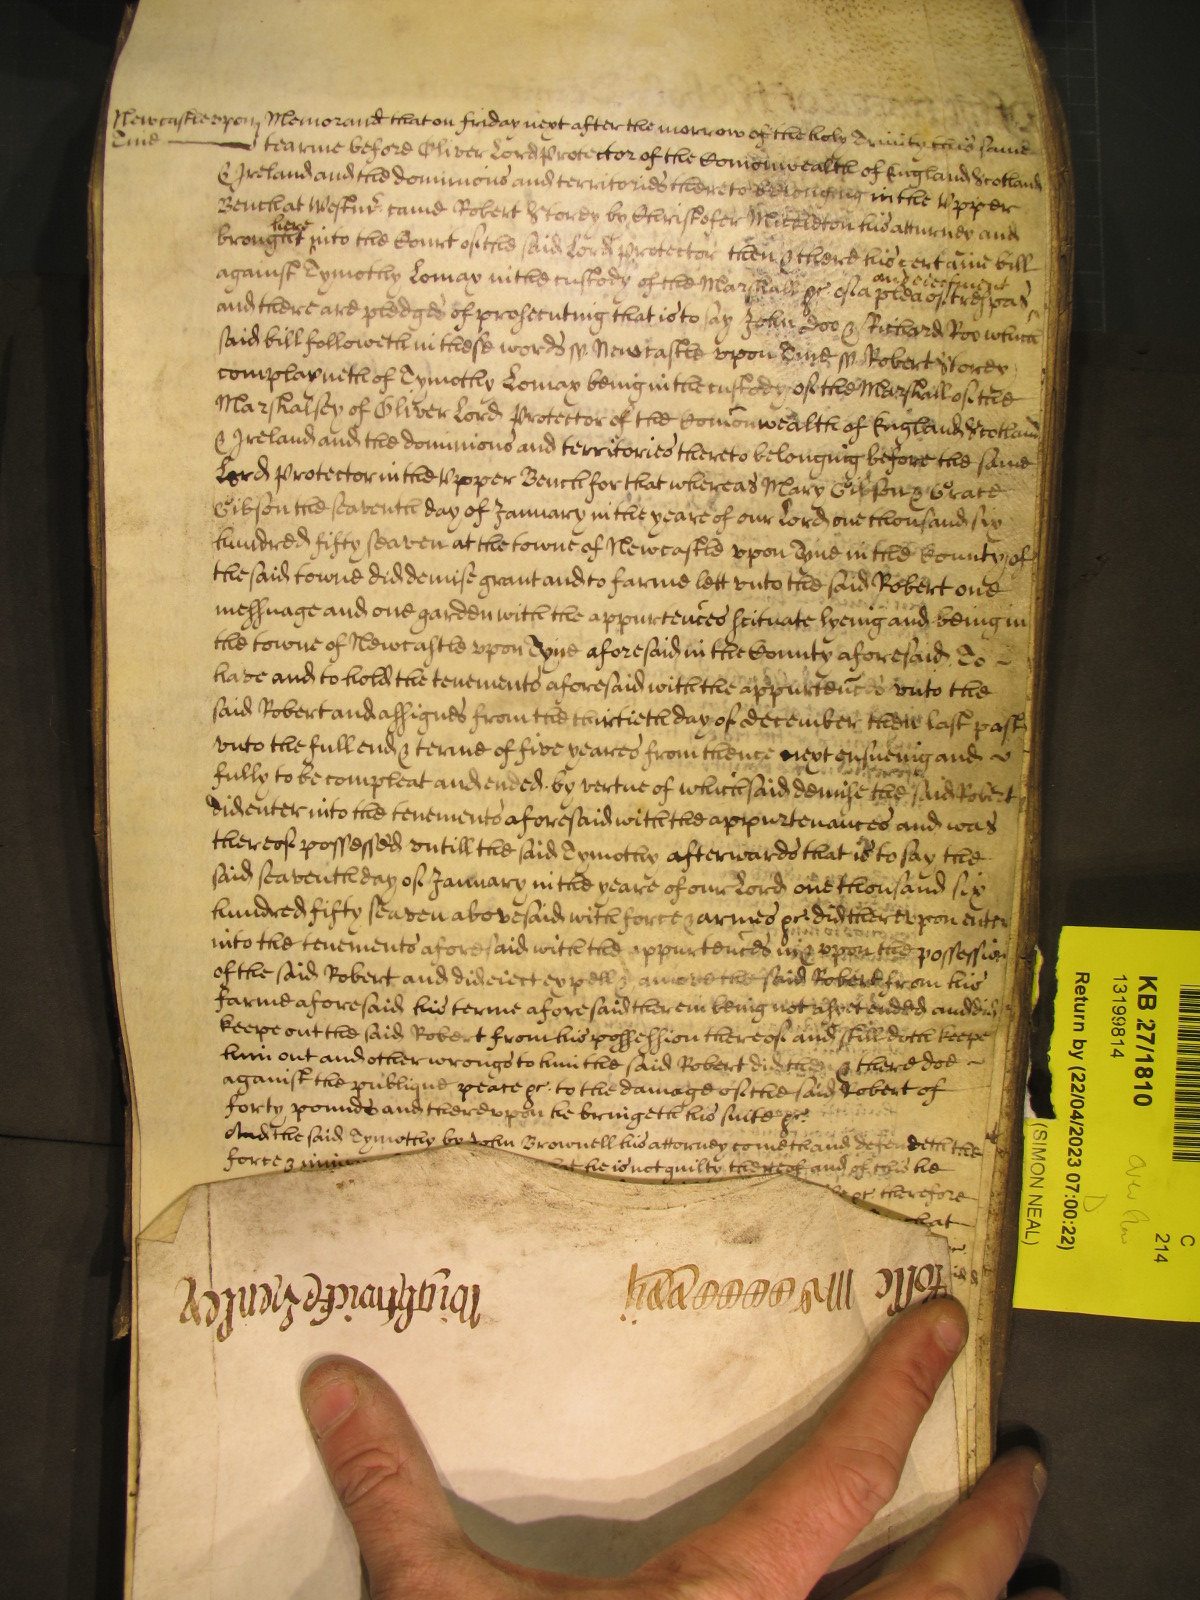 Newcastle upon Memorand that on friday next after the morrow of the holy Trinity this same
Tine tearme before Oliver Lord Protector of the Comonwealth of England Scotland
& Ireland and the dominions and territories thereto belonging in the Upper
Bench at Westmr came Robert Storey by Christofer Middleton his atturney and
brought here into the Court of the said Lord Protector then & there his certaine bill
against Tymothy Lomax in the custody of the Marshall &c. of a plea of trespas and ejectment
and there are pledges of prosecuting that is to say John Doo & Richard Roo which
said bill followeth in these words ss Newcastle upon Tine ss Robert Storey
complayneth of Tymothy Lomax being in the custody of the Marshall of the
Marshalsey of Oliver Lord Protector of the Comonwealth of England Scotland
& Ireland and the dominions and territories thereto belonging before the same
Lord Protector in the Upper Bench for that whereas Mary Gibson & Grace
Gibson the seaventh day of January in the yeare of our Lord one thousand six
hundred fifty seaven at the towne of Newcastle upon Tyne in the County of
the said towne did demise grant and to farme lett unto the said Robert one
messuage and one garden with the appurtences scituate lyeing and being in
the towne of Newcastle upon Tyne aforesaid in the County aforesaid To
have and to hold the tenements aforesaid with the appurtences unto the
said Robert and assignes from the thirtieth day of December then last past
unto the full end & terme of five yeares from thence next ensueing and
fully to be compleat and ended by vertue of which said demise the said Robert
did enter into the tenements aforesaid with the appurtenances and was
thereof possessed untill the said Tymothy afterwards that is to say the
said seaventh day of January in the yeare of our Lord one thousand six
hundred fifty seaven abovesaid with force & armes &c. did thereupon enter
into the tenements aforesaid with the appurtences in & upon the possession
of the said Robert and did eject expell & amove the said Robert from his
farme aforesaid his terme aforesaid therein being not as yet ended and did
keepe out the said Robert from his possession thereof and still doth keepe
him out and other wrongs to him the said Robert did then & there doe
against the publique peace &c. to the damage of the said Robert of
forty pounds and thereupon he bringeth his suite &c.
And the said Tymothy by John Brownell his attorney cometh and defendeth the
force & he is not guilty thereof and of this he
&c. therefore
that
Wightwicke Henley
KB 27/1810
13199814
Return by (22/04/2023 07:00:22)
(SIMON NEAL)
C
214
D